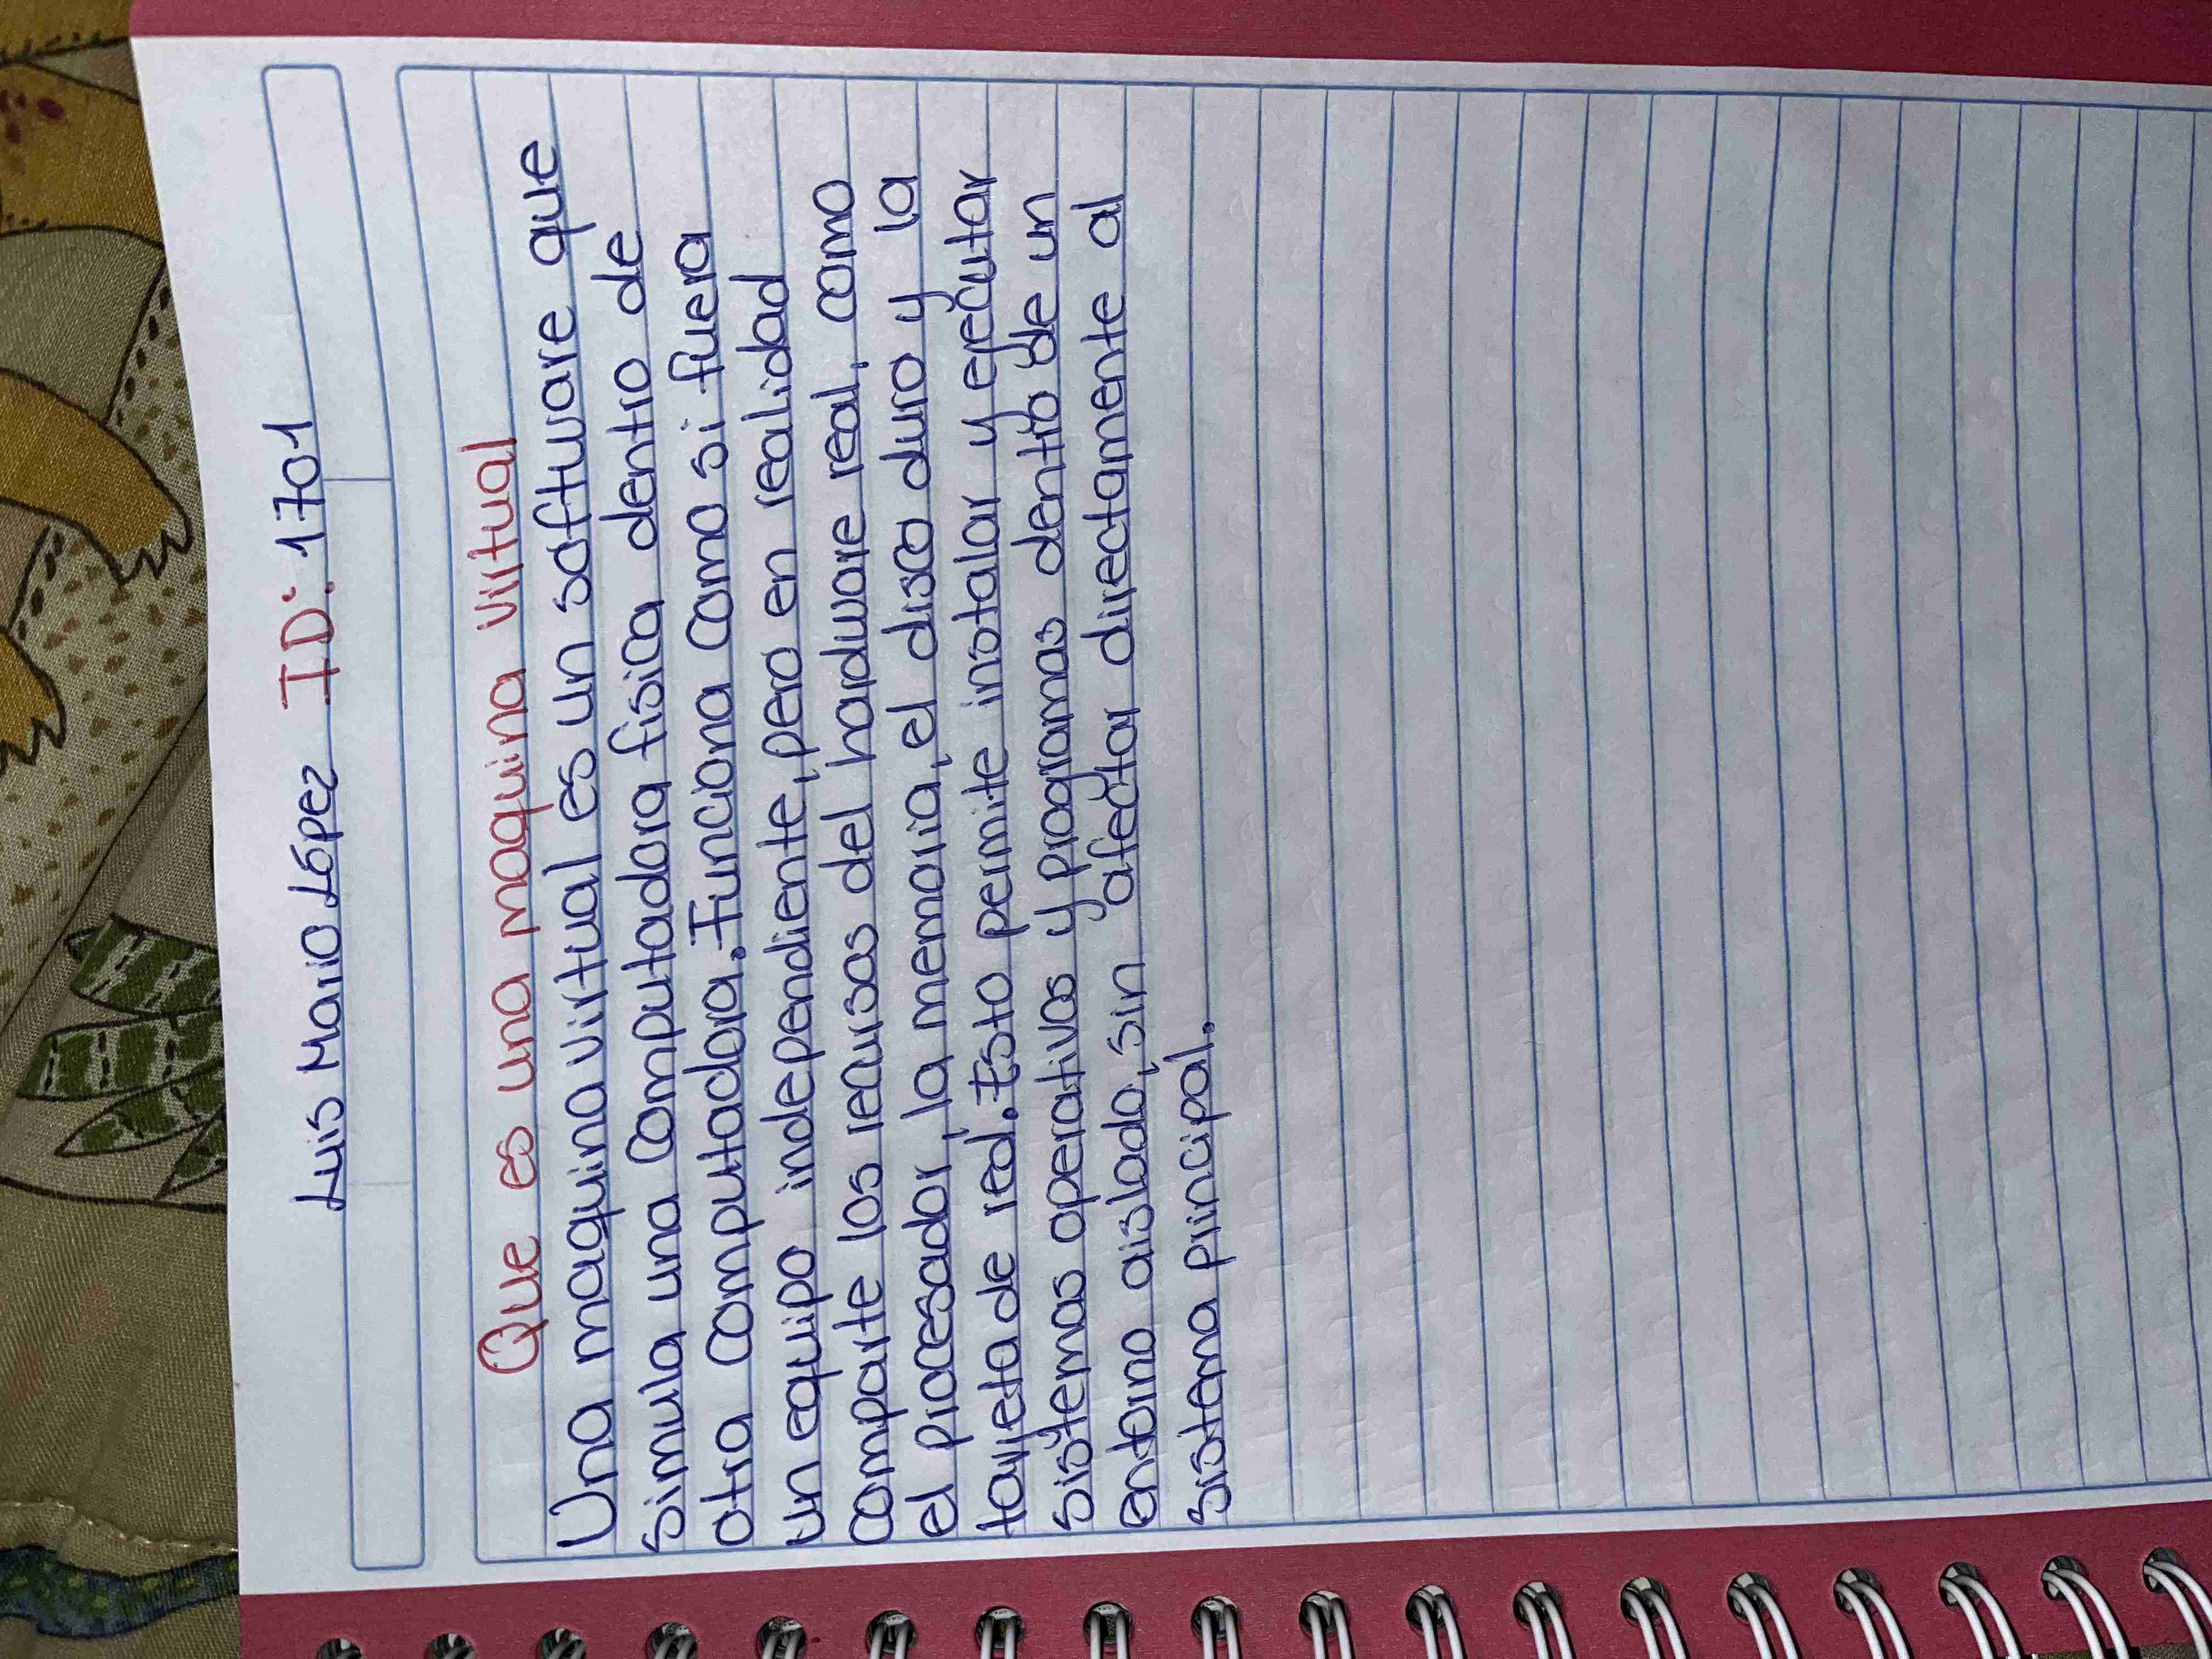 Luis Mario López ID: 1701
Que es una maquina virtual
Una maquina virtual es un software que
simula una computadora fisica dentro de
otra computadora. Funciona como si fuera
un equipo independiente, pero en realidad
comparte los recursos del hardware real, como
el procesador, la memoria, el disco duro y la
tarjeta de red. Esto permite instalar y ejecutar
sistemas operativos y programas dentro de un
entorno aislado, sin afectar directamente al
sistema principal.